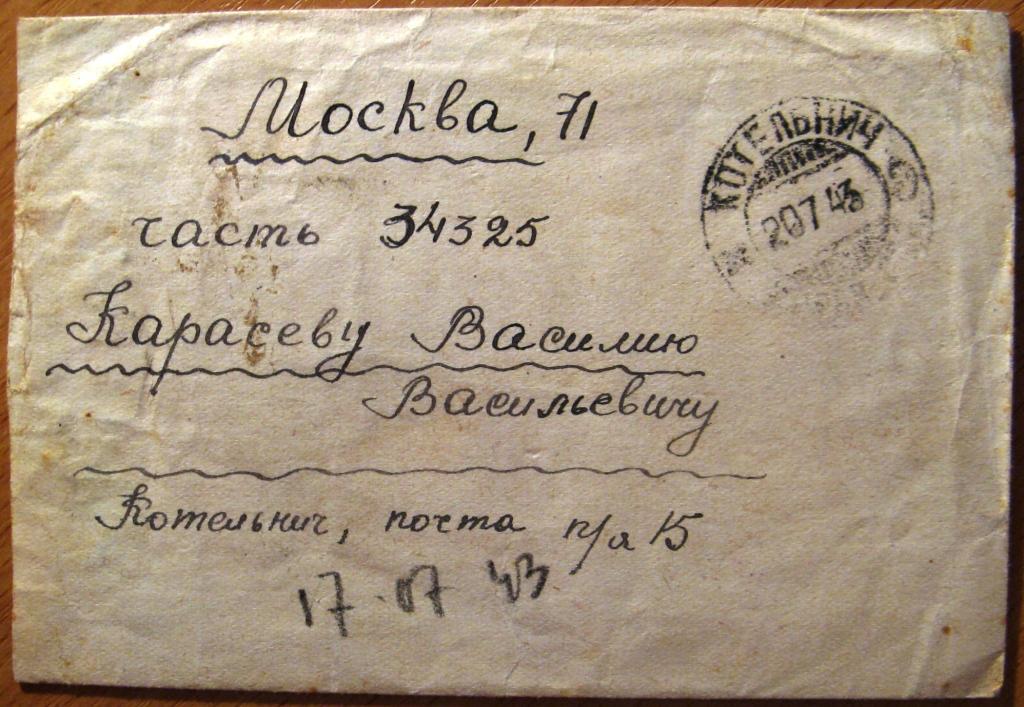 Москва, 71
КОТЕЛЬНИЧ
20 7 43
часть 34325
Карасеву Василию
Васильевичу
Котельнич, почта п/я 15
17.07 43